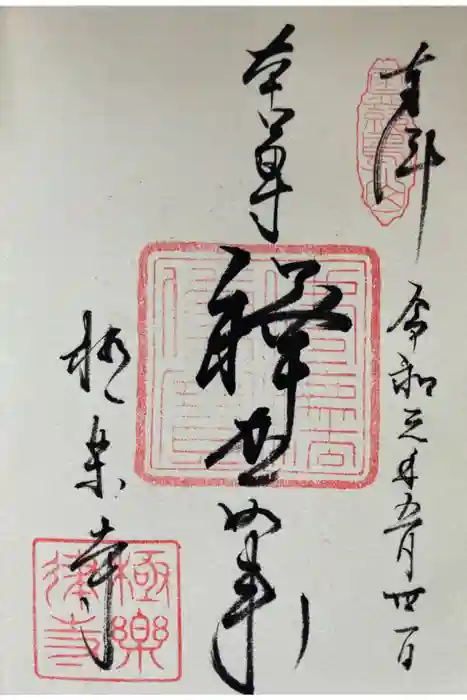 奉拝
令和元年五月四日
本尊
釋迦如来
極楽寺
極樂
律寺